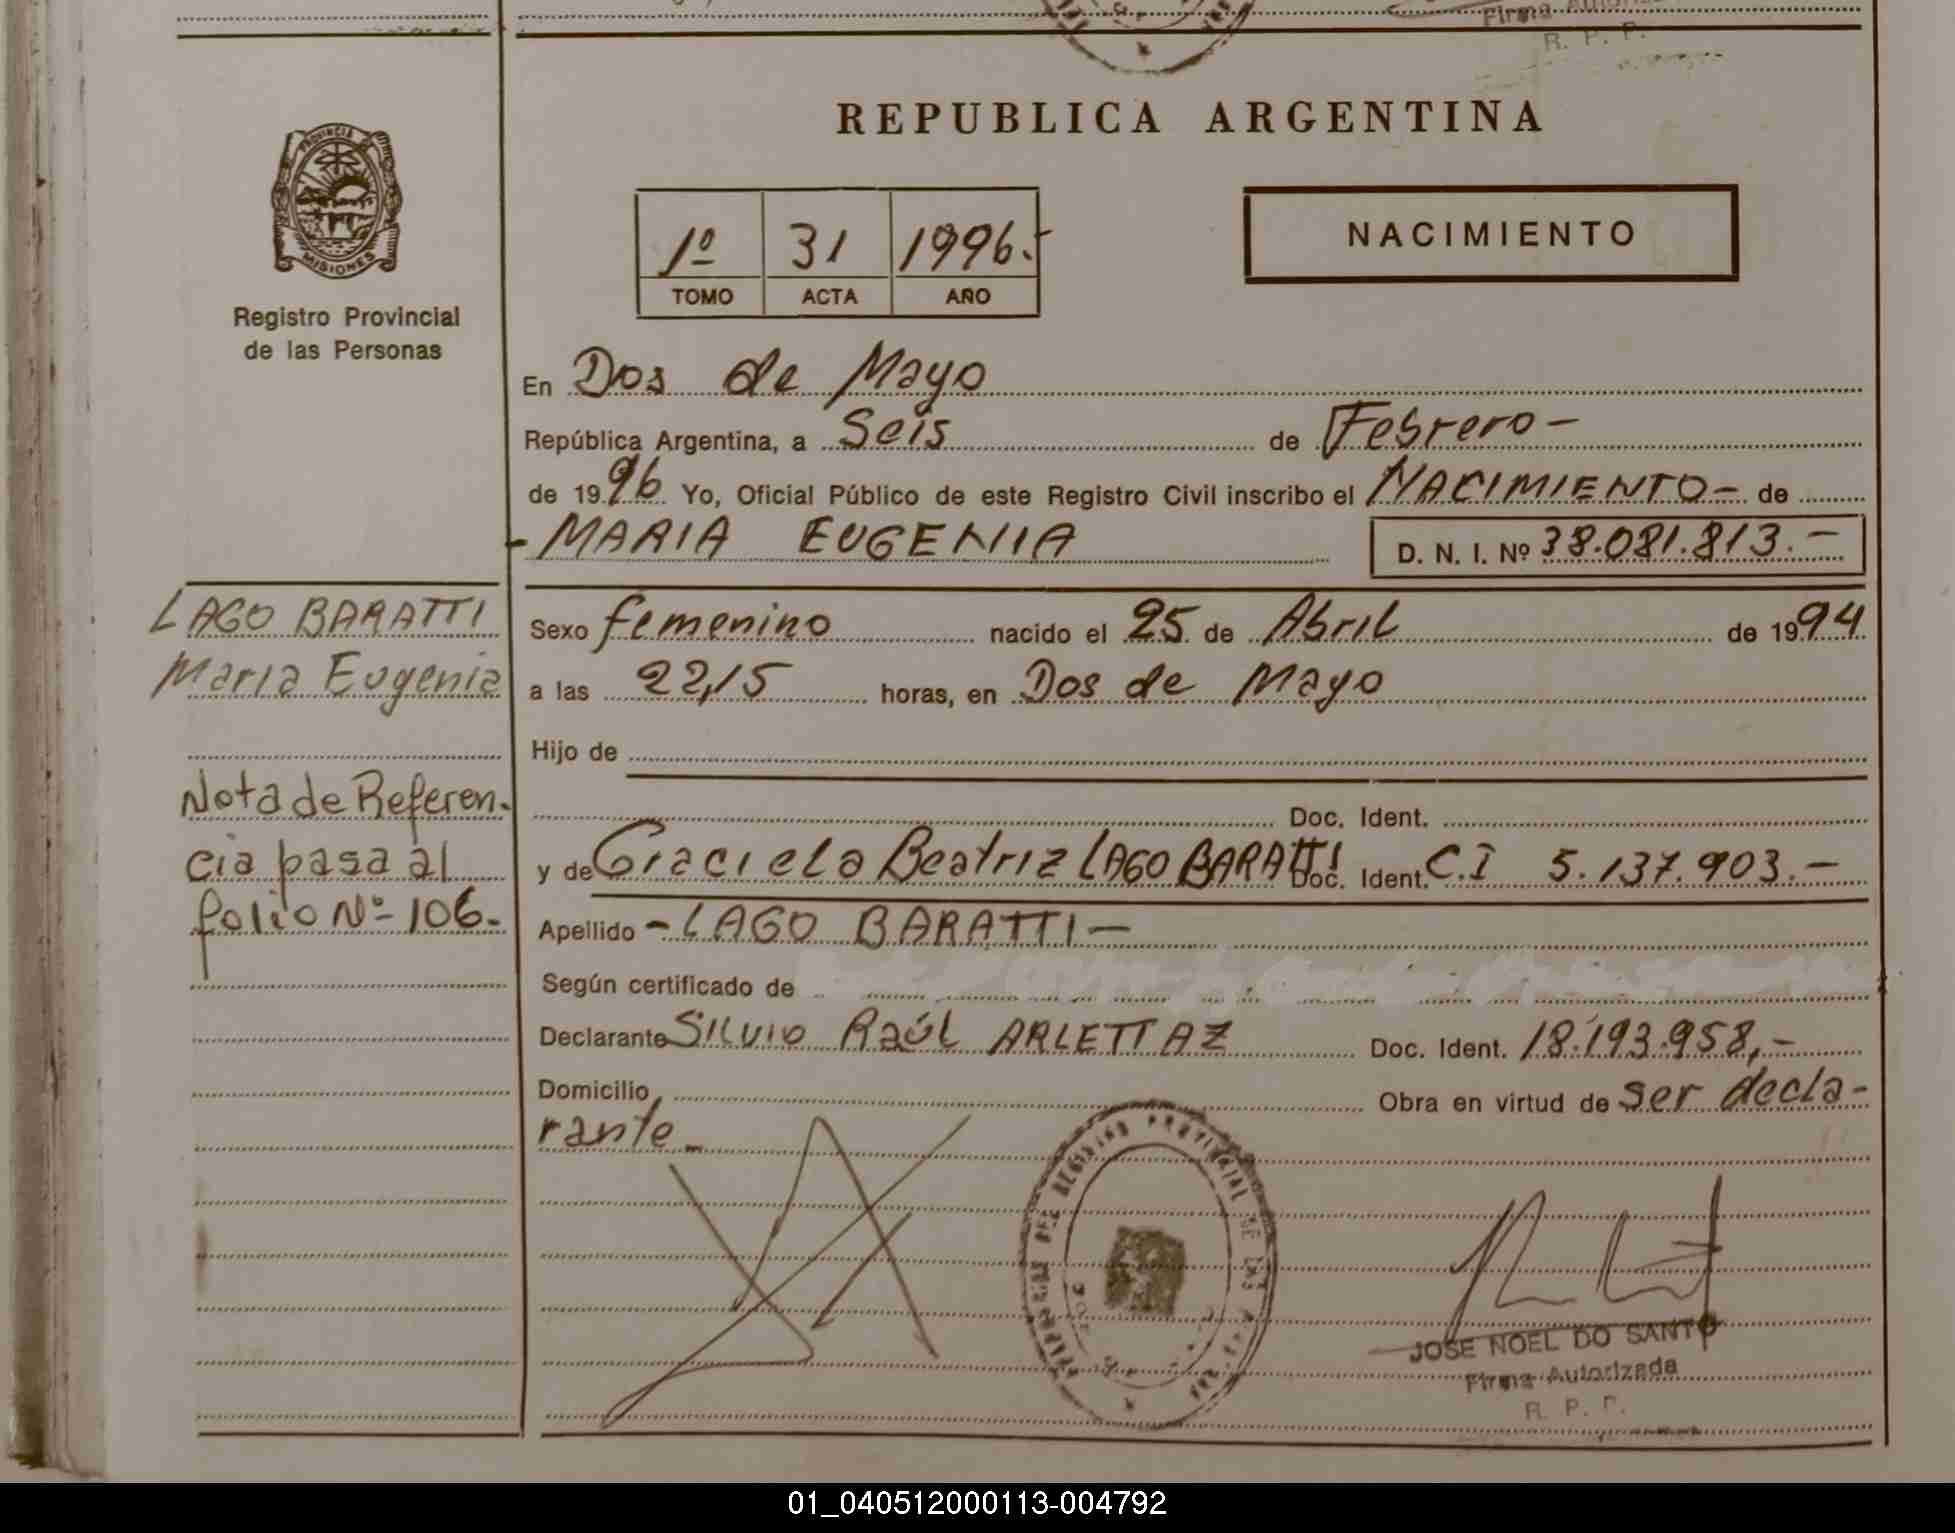 Firma Autoriz
R. P. P.
REPUBLICA ARGENTINA
PROVINCIA
MISIONES
Registro Provincial
de las Personas
1º 31 1996.-
TOMO ACTA AÑO
NACIMIENTO
En Dos de Mayo
República Argentina, a Seis de Febrero -
de 1996 Yo, Oficial Público de este Registro Civil inscribo el NACIMIENTO - de
- MARIA EUGENIA D. N. I. Nº 38.081.813.-
LAGO BARATTI
Maria Eugenia
Sexo femenino nacido el 25 de Abril de 1994
a las 22,15 horas, en Dos de Mayo
Hijo de
Nota de Referen-
cia pasa al
folio Nº 106.
Doc. Ident.
y de Graciela Beatriz LAGO BARATTI Doc. Ident. C.I 5.137.903.-
Apellido - LAGO BARATTI -
Según certificado de
Declarante SILVIO RAÚL ARLETTAZ Doc. Ident. 18.193.958,-
Domicilio Obra en virtud de ser decla-
rante -
REGISTRO PROVINCIAL DE LAS
JOSE NOEL DO SANTO
Firma Autorizada
R. P. P.
01_040512000113-004792